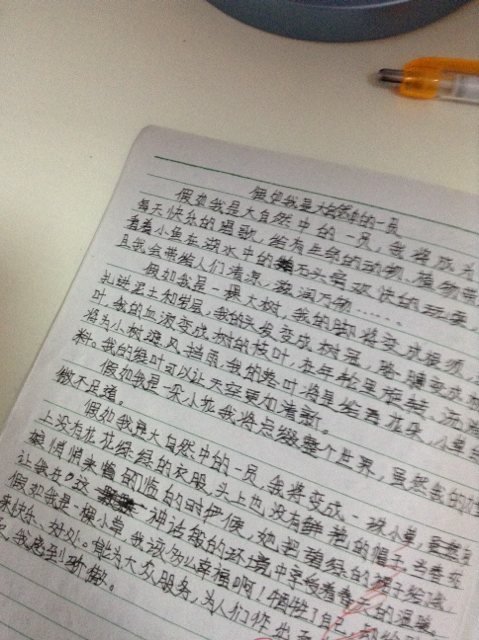 假如我是大自然中的一员
假如我是大自然中的一员，我将成为
每天快乐的唱歌，给有生命的动物、植物带
看着小鱼在湖水中的石头旁欢快的玩耍，
且我会带给人们清凉，滋润万物……
假如我是一棵大树，我的脚将变成根须，
扎进泥土和岩层，我的头发变成树冠，胳膊变成树
叶，我的血液变成树的枝叶，在年轮里旋转、流淌
将为小树遮风挡雨，我的落叶将是给花朵、小草
料。我的绿叶可以让天空更加清新。
假如我是一朵小花我将点缀整个世界，虽然我的
微不足道。
假如我是大自然中的一员，我将变成一棵小草，
上没有花花绿绿的衣服，头上也没有鲜艳的帽子，当春天
悄悄来临的时候，她把碧绿的
让我在这神话般的环境中享受着春天的温暖
假如我是一棵小草，我该多么幸福啊！牺牲了自己
来快乐、好处。能为大众服务，为人们作出
我感到骄傲。